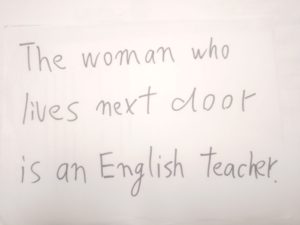 The woman who
lives next door
is an English teacher.